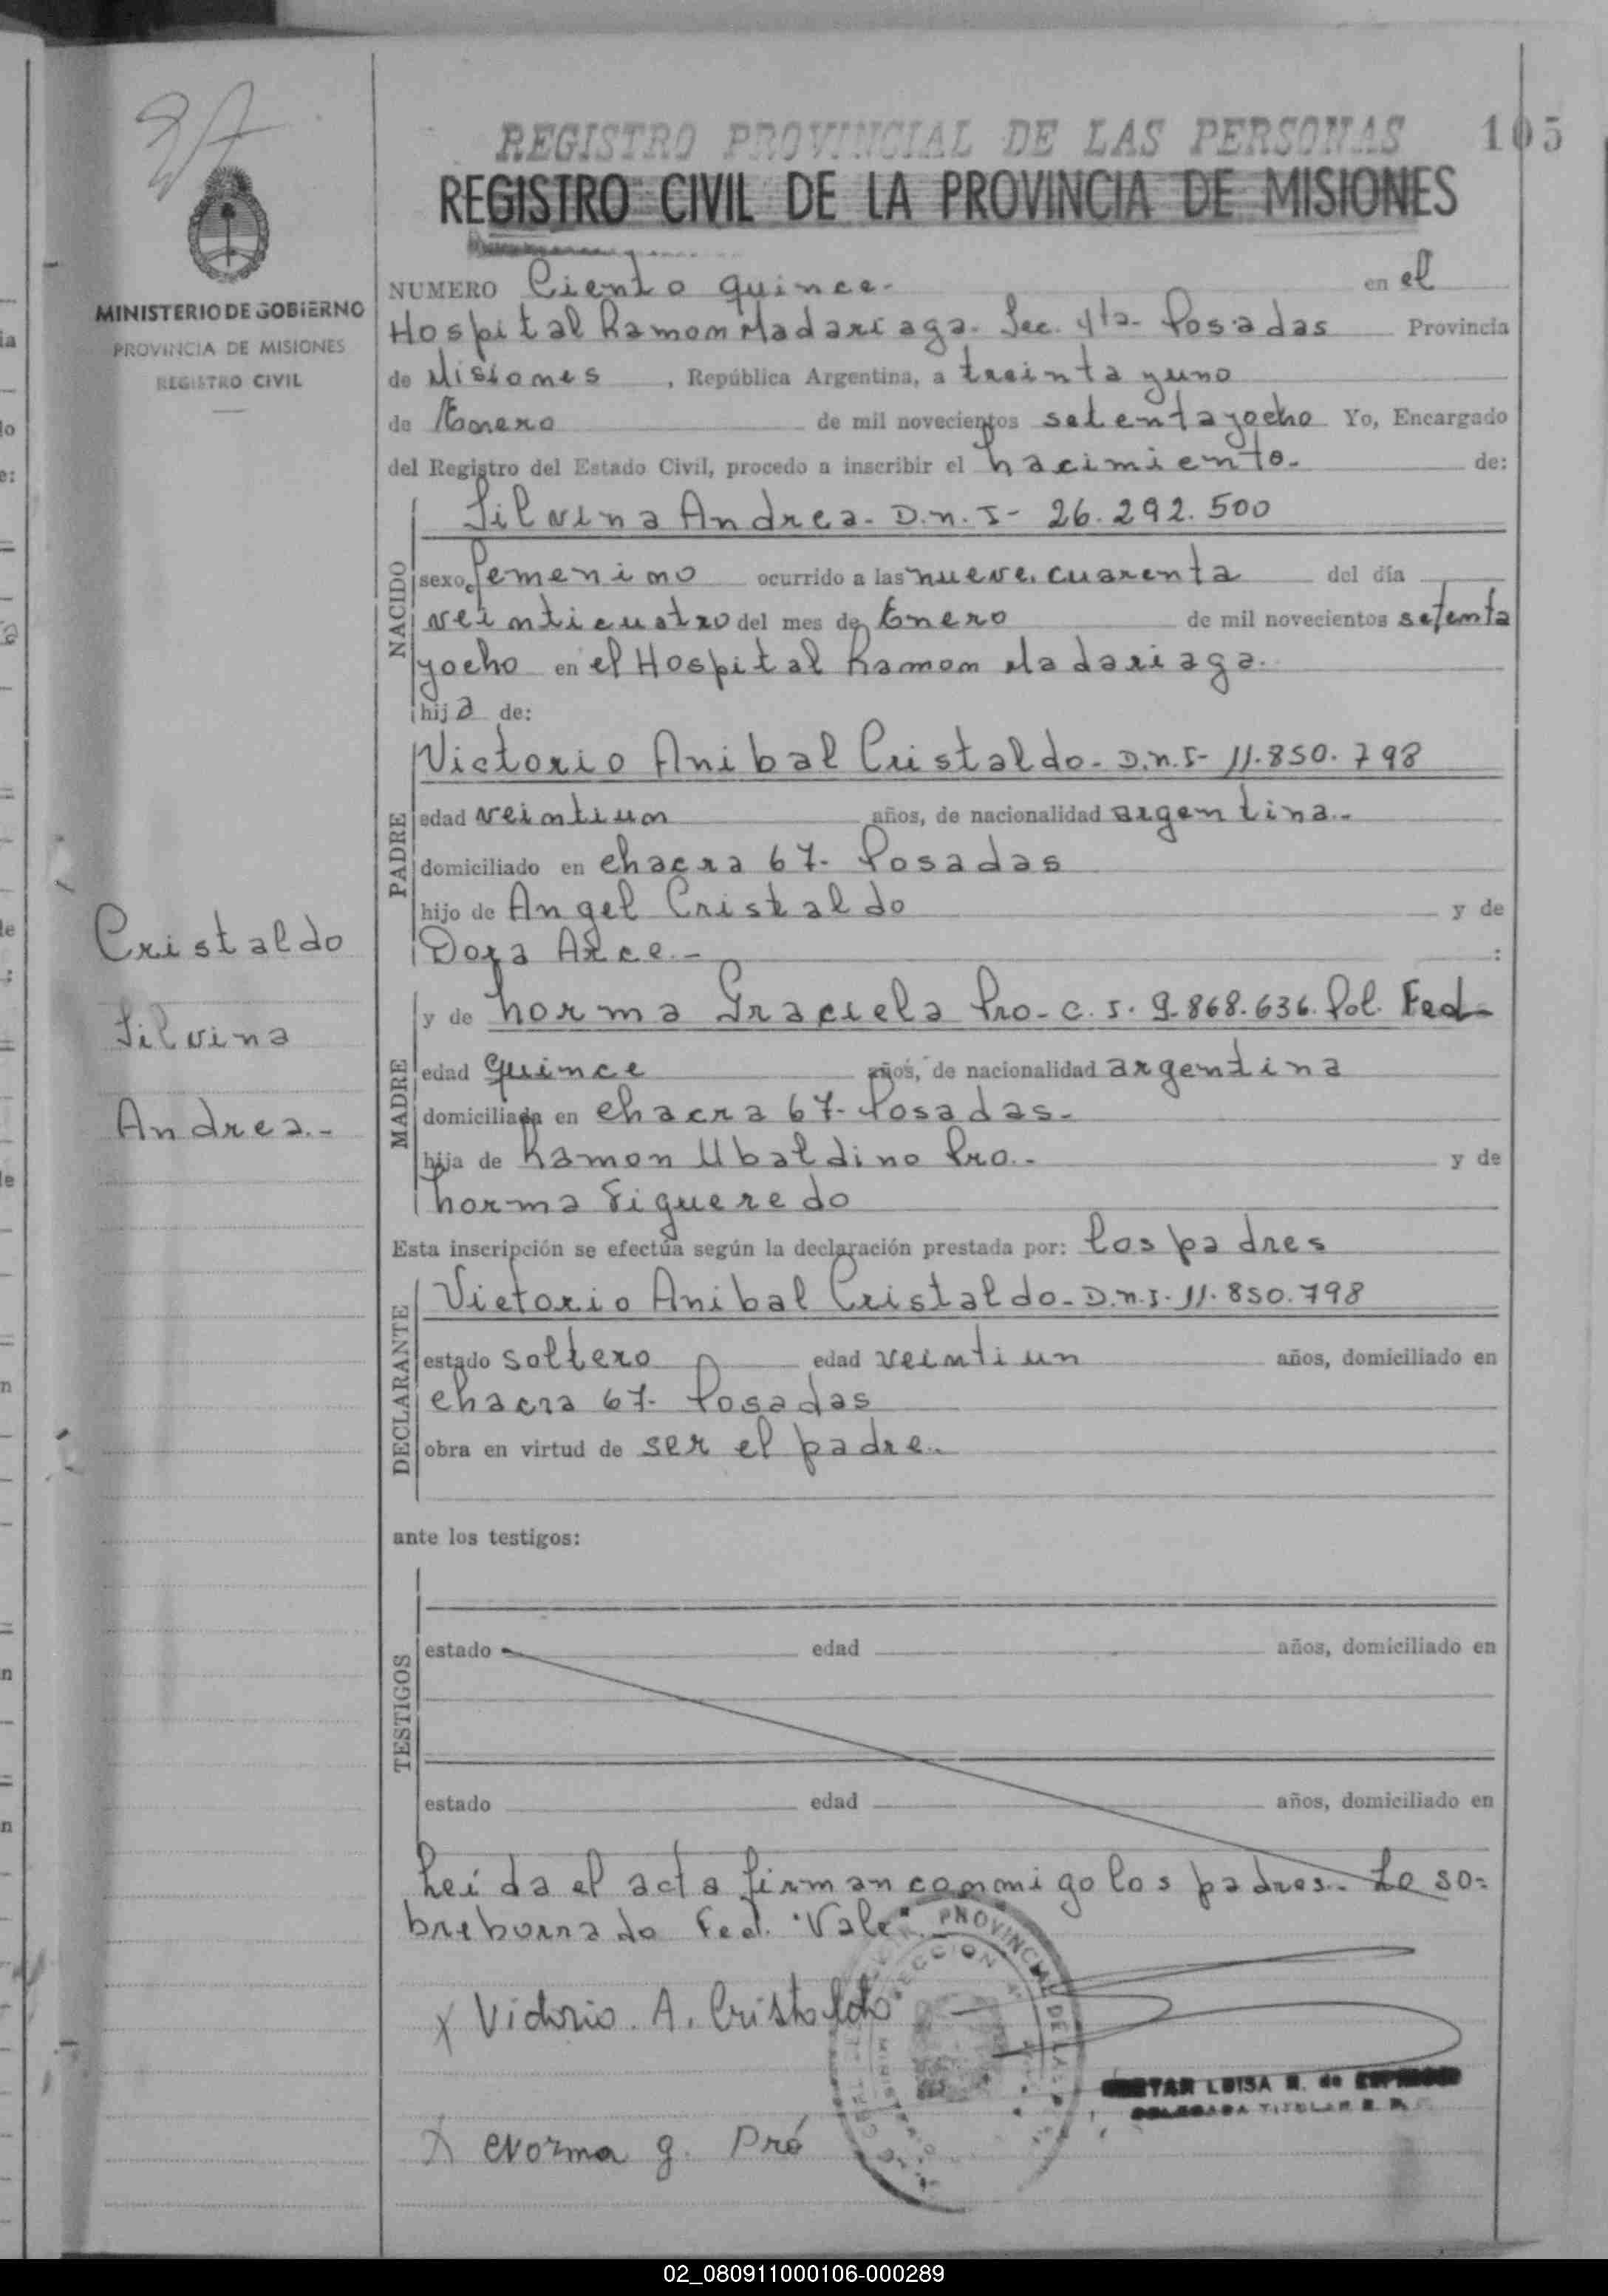 REGISTRO PROVINCIAL DE LAS PERSONAS 105
REGISTRO CIVIL DE LA PROVINCIA DE MISIONES
MINISTERIO DE GOBIERNO
PROVINCIA DE MISIONES
REGISTRO CIVIL
NUMERO Ciento quince.- en el
Hospital Ramon Madariaga. Sec. 4ta. Posadas Provincia
de Misiones, República Argentina, a treinta y uno
de Enero de mil novecientos setenta y ocho Yo, Encargado
del Registro del Estado Civil, procedo a inscribir el Nacimiento.- de:
NACIDO
Silvina Andrea. D.N.I- 26.292.500
sexo femenino ocurrido a las nueve, cuarenta del día
veinticuatro del mes de Enero de mil novecientos setenta
y ocho en el Hospital Ramon Madariaga.
hija de:
PADRE
Victorio Anibal Cristaldo. D.N.I- 11.850.798
edad veintiun años, de nacionalidad argentina.-
domiciliado en chacra 67- Posadas
hijo de Angel Cristaldo y de
Dora Arce.- :
Cristaldo
Silvina
Andrea.-
MADRE
y de Norma Graciela Pro- C.I. 9.868.636. Pol. Fed-
edad quince años, de nacionalidad argentina
domiciliada en chacra 67- Posadas-
hija de Ramon Ubaldino Pro.- y de
Norma Figueredo
Esta inscripción se efectúa según la declaración prestada por: los padres
DECLARANTE
Victorio Anibal Cristaldo- D.N.I. 11.850.798
estado soltero edad veintiun años, domiciliado en
chacra 67- Posadas
obra en virtud de ser el padre.-
ante los testigos:
TESTIGOS
estado edad años, domiciliado en
estado edad años, domiciliado en
Leída el acta firman conmigo los padres. Lo so-
breborrado Fed. "Vale".
X Victorio. A. Cristaldo
LUISA de
DELEGADA TITULAR
X Norma g. Pró
02_080911000106-000289